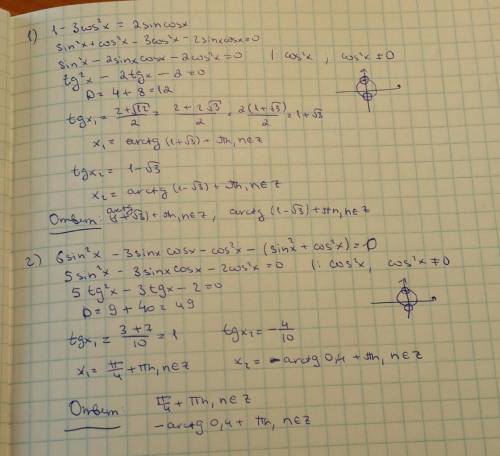 1) 1 - 3cos²x = 2sinxcosx
sin²x + cos²x - 3cos²x - 2sinxcosx = 0
sin²x - 2sinxcosx - 2cos²x = 0 | : cos²x, cos²x ≠ 0
tg²x - 2tgx - 2 = 0
D = 4 + 8 = 12
tgx₁ = (2+√12)/2 = (2+2√3)/2 = 2(1+√3)/2 = 1+√3
x₁ = arctg(1+√3) + πn, n∈Z
tgx₂ = 1-√3
x₂ = arctg(1-√3) + πn, n∈Z
Ответ: arctg(1+√3) + πn, n∈Z, arctg(1-√3) + πn, n∈Z
2) 6sin²x - 3sinxcosx - cos²x - (sin²x + cos²x) = 0
5sin²x - 3sinxcosx - 2cos²x = 0 | : cos²x, cos²x ≠ 0
5tg²x - 3tgx - 2 = 0
D = 9 + 40 = 49
tgx₁ = (3+7)/10 = 1 tgx₂ = -4/10
x₁ = π/4 + πn, n∈Z x₂ = -arctg 0,4 + πn, n∈Z
Ответ π/4 + πn, n∈Z
-arctg 0,4 + πn, n∈Z